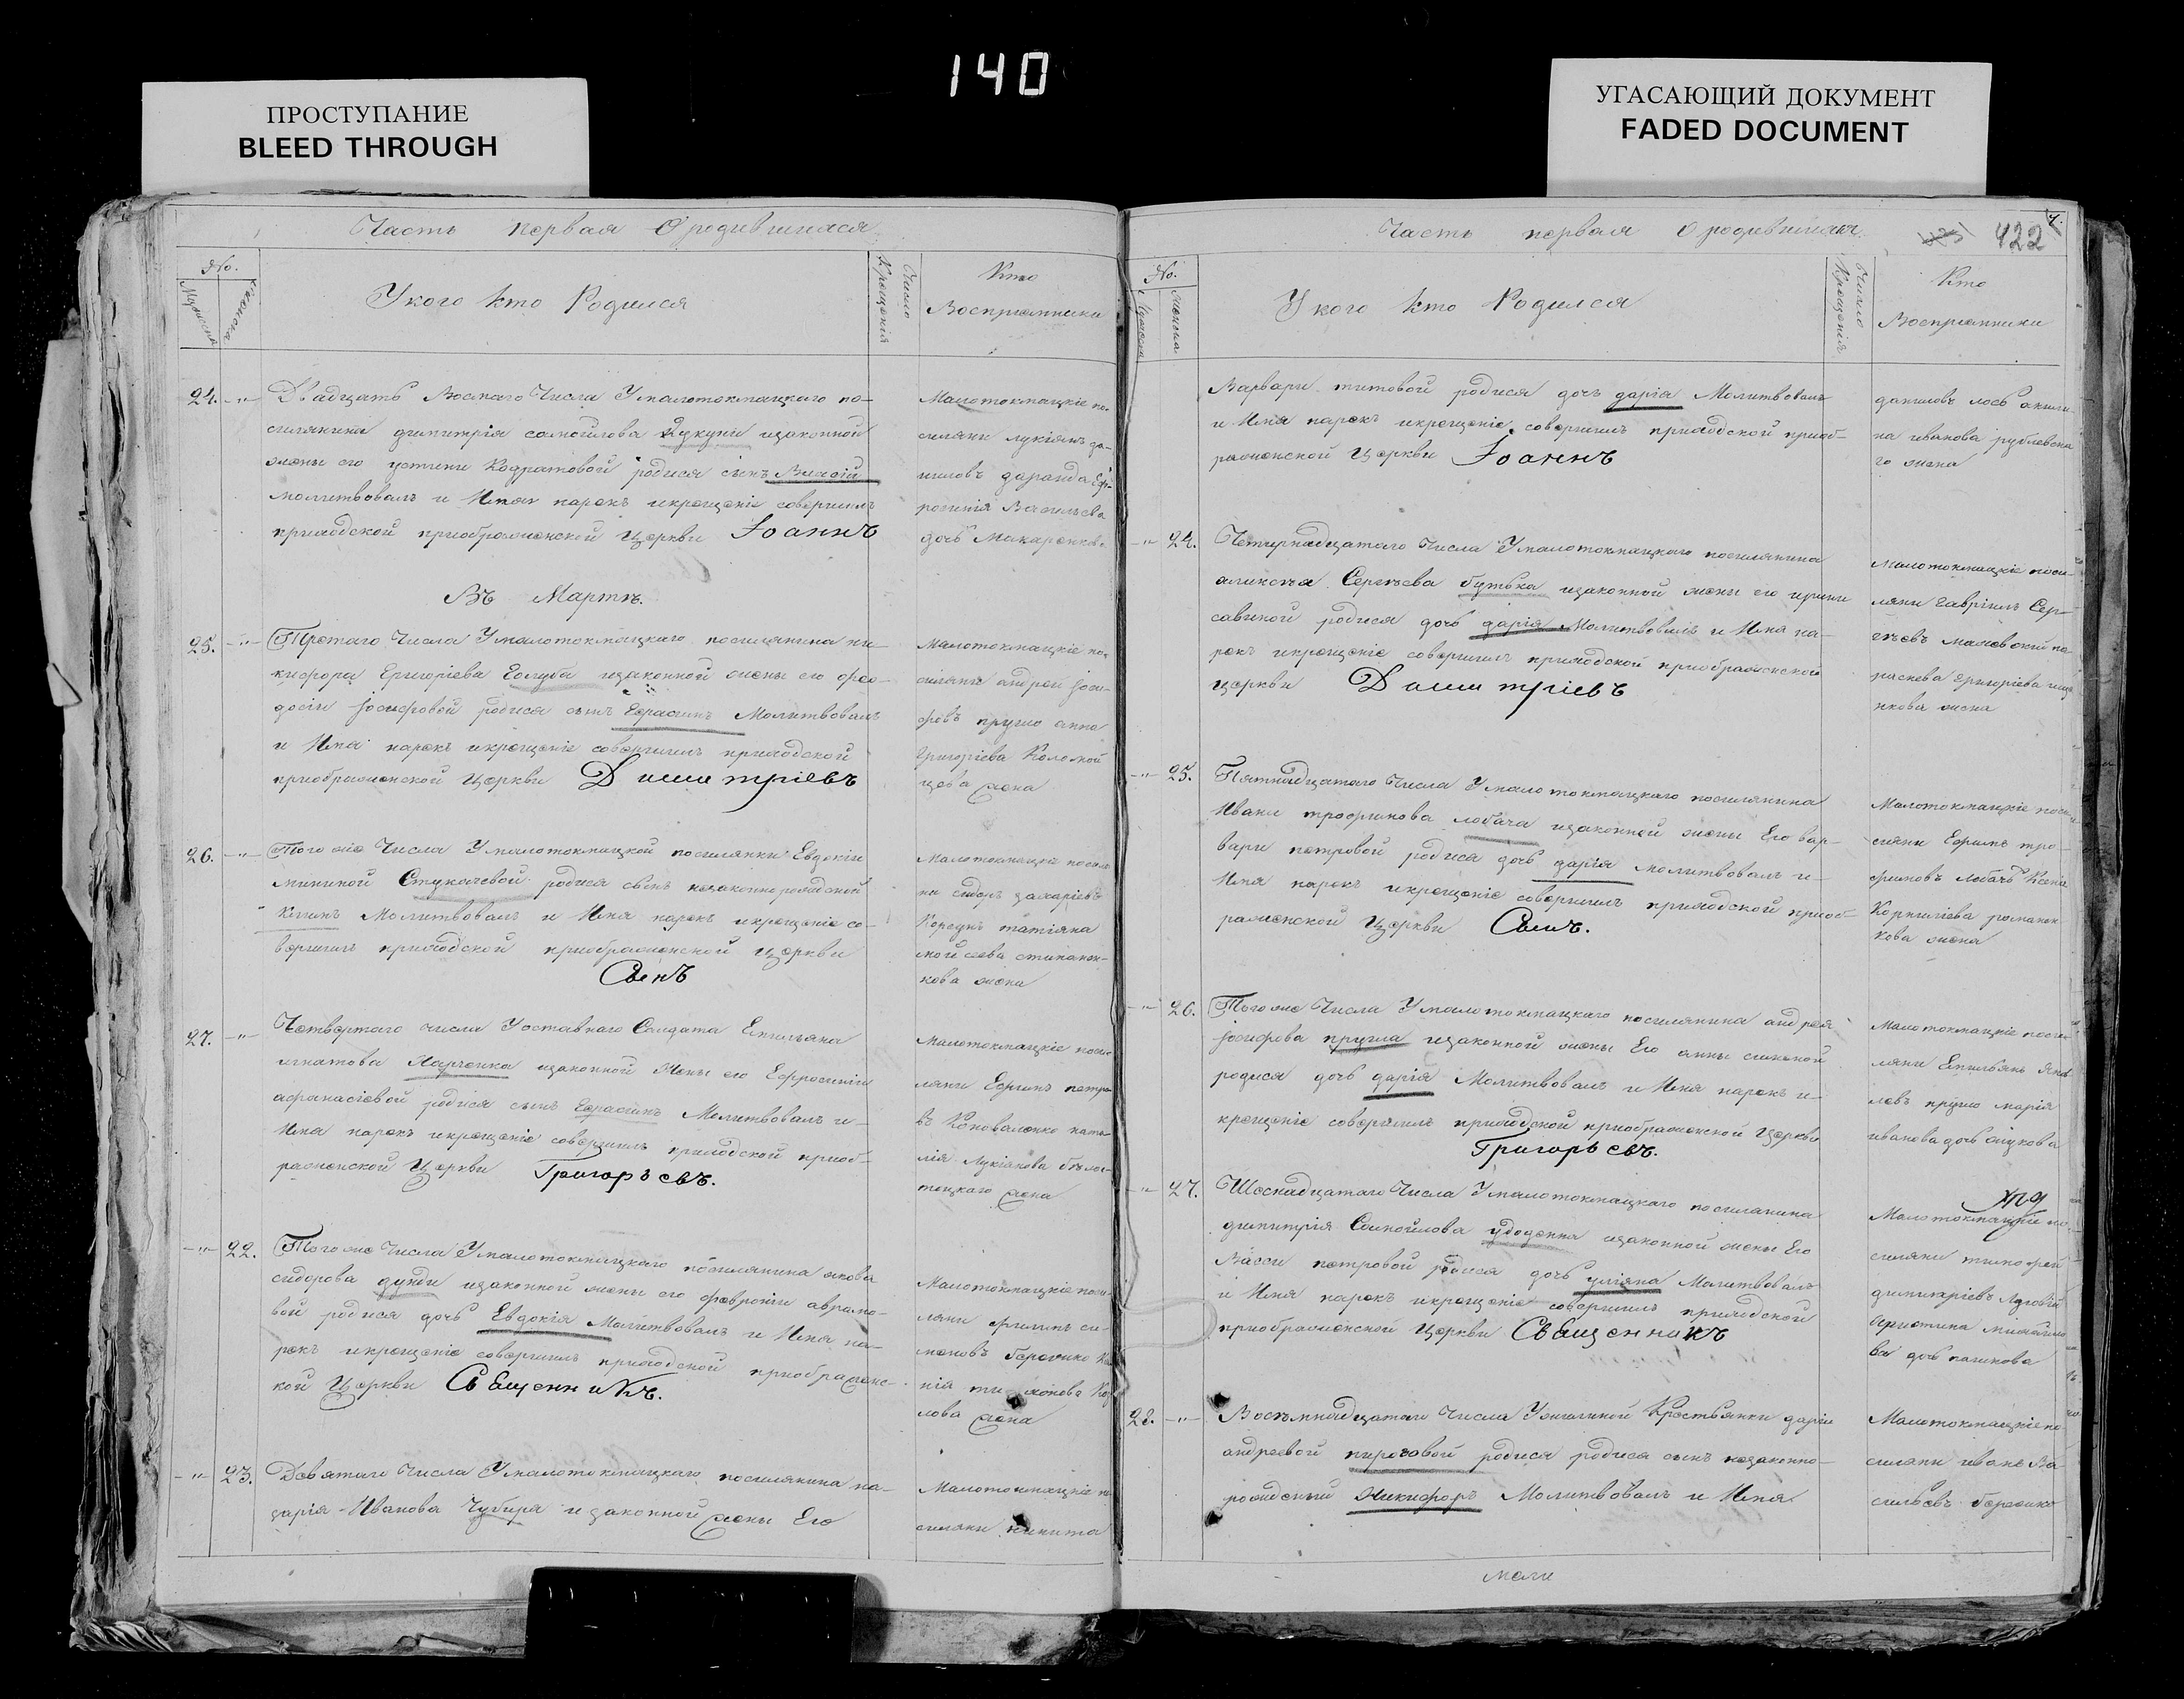 140
ПРОСТУПАНИЕ
BLEED THROUGH
УГАСАЮЩИЙ ДОКУМЕНТ
FADED DOCUMENT
Часть первая О родившихся
No.
Мужеска
Женска
У кого кто Родился
Число
Крещенія
Кто
Воспріемники
24. -"- Двадцать Восмаго Числа У малотокмацкаго по-
силянина димитрія самойлова изаконной
жены его устини Кодратовой родися сынъ
молитвовалъ и Имя нарекъ икрещеніе совершилъ
приходской приображенской Церкви Іоаннъ
Малотокмацкіе по-
силяни лукіянъ да-
ниловъ Еф-
росинія Васильева
дочь Макаренкова
Въ Мартѣ.
25. -"- Третаго Числа У малотокмацкаго посилянина ни-
кифора Григоріева Голуба изаконной жены его фео-
досіи Іосифовой родися сынъ Герасимъ Молитвовалъ
и Имя нарекъ икрещеніе совершилъ приходской
приображенской Церкви Димитріевъ
Малотокмацкіе по-
силяни андрей Іоси-
фовъ пругло анна
Григоріева Коломой
цева жена
26. -"- Того же Числа У малотокмацкой посилянки Евдокіи
мининой Стукачевой родися сынъ незаконнорожденой
Молитвовалъ и Имя нарекъ икрещеніе со-
вершилъ приходской приображенской Церкви
Симъ
Малотокмацкіе посиля
ни сидоръ захаріевъ
татіяна
степанен-
кова жена
27. -"- Четвертаго числа У оставнаго Солдата Емильяна
игнатова Харченка изаконной Жены его Ефросиніи
афанасіевой родися сынъ Герасимъ Молитвовалъ и
Имя нарекъ икрещеніе совершилъ приходской приоб-
раженской Церкви Григорьевъ.
Малотокмацкіе поси
ляни Ефимъ петро
въ Коноваленко ната
лія Лукіанова
жена
-"- 22. Того же Числа У малотокмацкаго посилянина якова
сидорова дунди изаконной жены его февроніи аврамо-
вой родися дочь Евдокія Молитвовалъ и Имя на-
рекъ икрещеніе совершилъ приходской приображенс-
кой Церкви Священникъ.
Малотокмацкіе поси
ляни филипъ си-
меновъ
лова жена
-"- 23. Девятаго Числа У малотокмацкаго посилянина на-
зарія Иванова Чубиря изаконной жены Его
Малотокмацкіе по
силяни никита
Часть первая О родившихся
422
No.
Мужеска
Женска
У кого кто Родился
Число
Крещенія
Кто
Воспріемники
Варвари титовой родися дочь дарія Молитвовалъ
и Имя нарекъ икрещеніе совершилъ приходской приоб-
раженской Церкви Іоаннъ
даниловъ лось акили-
на иванова рублевска
го жена
-"- 24. Четирнадцатаго Числа У малотокмацкаго посилянина
аликсѣя Сергѣева бутька изаконной жены его ирини
савиной родися дочь дарія Молитвовалъ и Имя на-
рекъ икрещеніе совершилъ приходской приображенской
церкви Димитріевъ
Малотокмацкіе поси-
ляни Гавріилъ Сер-
гѣевъ па-
раскева Григоріева
нкова жена
-"- 25. Пятнадцатаго Числа У малотокмацкаго посилянина
Ивана трофимова лобача изаконной жены Его вар-
вари петровой родися дочь дарія молитвовалъ и
Имя нарекъ икрещеніе совершилъ приходской приоб-
раженской Церкви Симъ.
Малотокмацкіе поси
ляни Ефимъ тро-
фимовъ Лобачъ Ксенія
Корниліева романен
кова жена
-"- 26. Того же Числа У малотокмацкаго посилянина андрея
Іосифова пругла изаконной жены Его анны
родися дочь дарія Молитвовалъ и Имя нарекъ и
крещеніе совершилъ приходской приображенской Церкви
Григорьевъ.
Малотокмацкіе поси
ляни Емильянъ Яков
левъ пругло марія
иванова дочь
-"- 27. Шеснадцатаго Числа У малотокмацкаго посилянина
димитрія Самойлова удоденка изаконной жены Его
Васси петровой родися дочь уліяна Молитвовалъ
и Имя нарекъ икрещеніе совершилъ приходской
приображенской Церкви Священникъ
Малотокмацкіе по-
силяни тимофей
димитріевъ
михайло
ва дочь
28. -"- Восѣмнадцатаго Числа У Крестьянки даріи
андреевой пироговой родися родися сынъ незаконно-
рожденый Никифоръ Молитвовалъ и Имя
Малотокмацкіе по
силяни иванъ Ва-
сильевъ